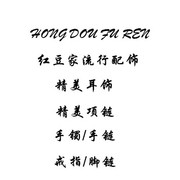 HONG DOU FU REN
红豆家流行配饰
精美耳饰
精美项链
手镯/手链
戒指/脚链